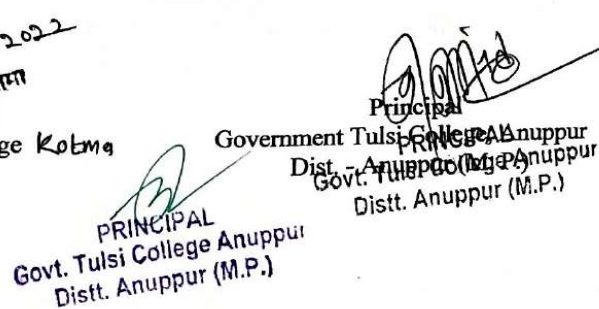 2022
Principal
ge Kotma
Government Tulsi College, Anuppur
Dist. - Anuppur (M.P.)
PRINCIPAL
Govt. Tulsi College Anuppur
Distt. Anuppur (M.P.)
PRINCIPAL
Govt. Tulsi College Anuppur
Distt. Anuppur (M.P.)